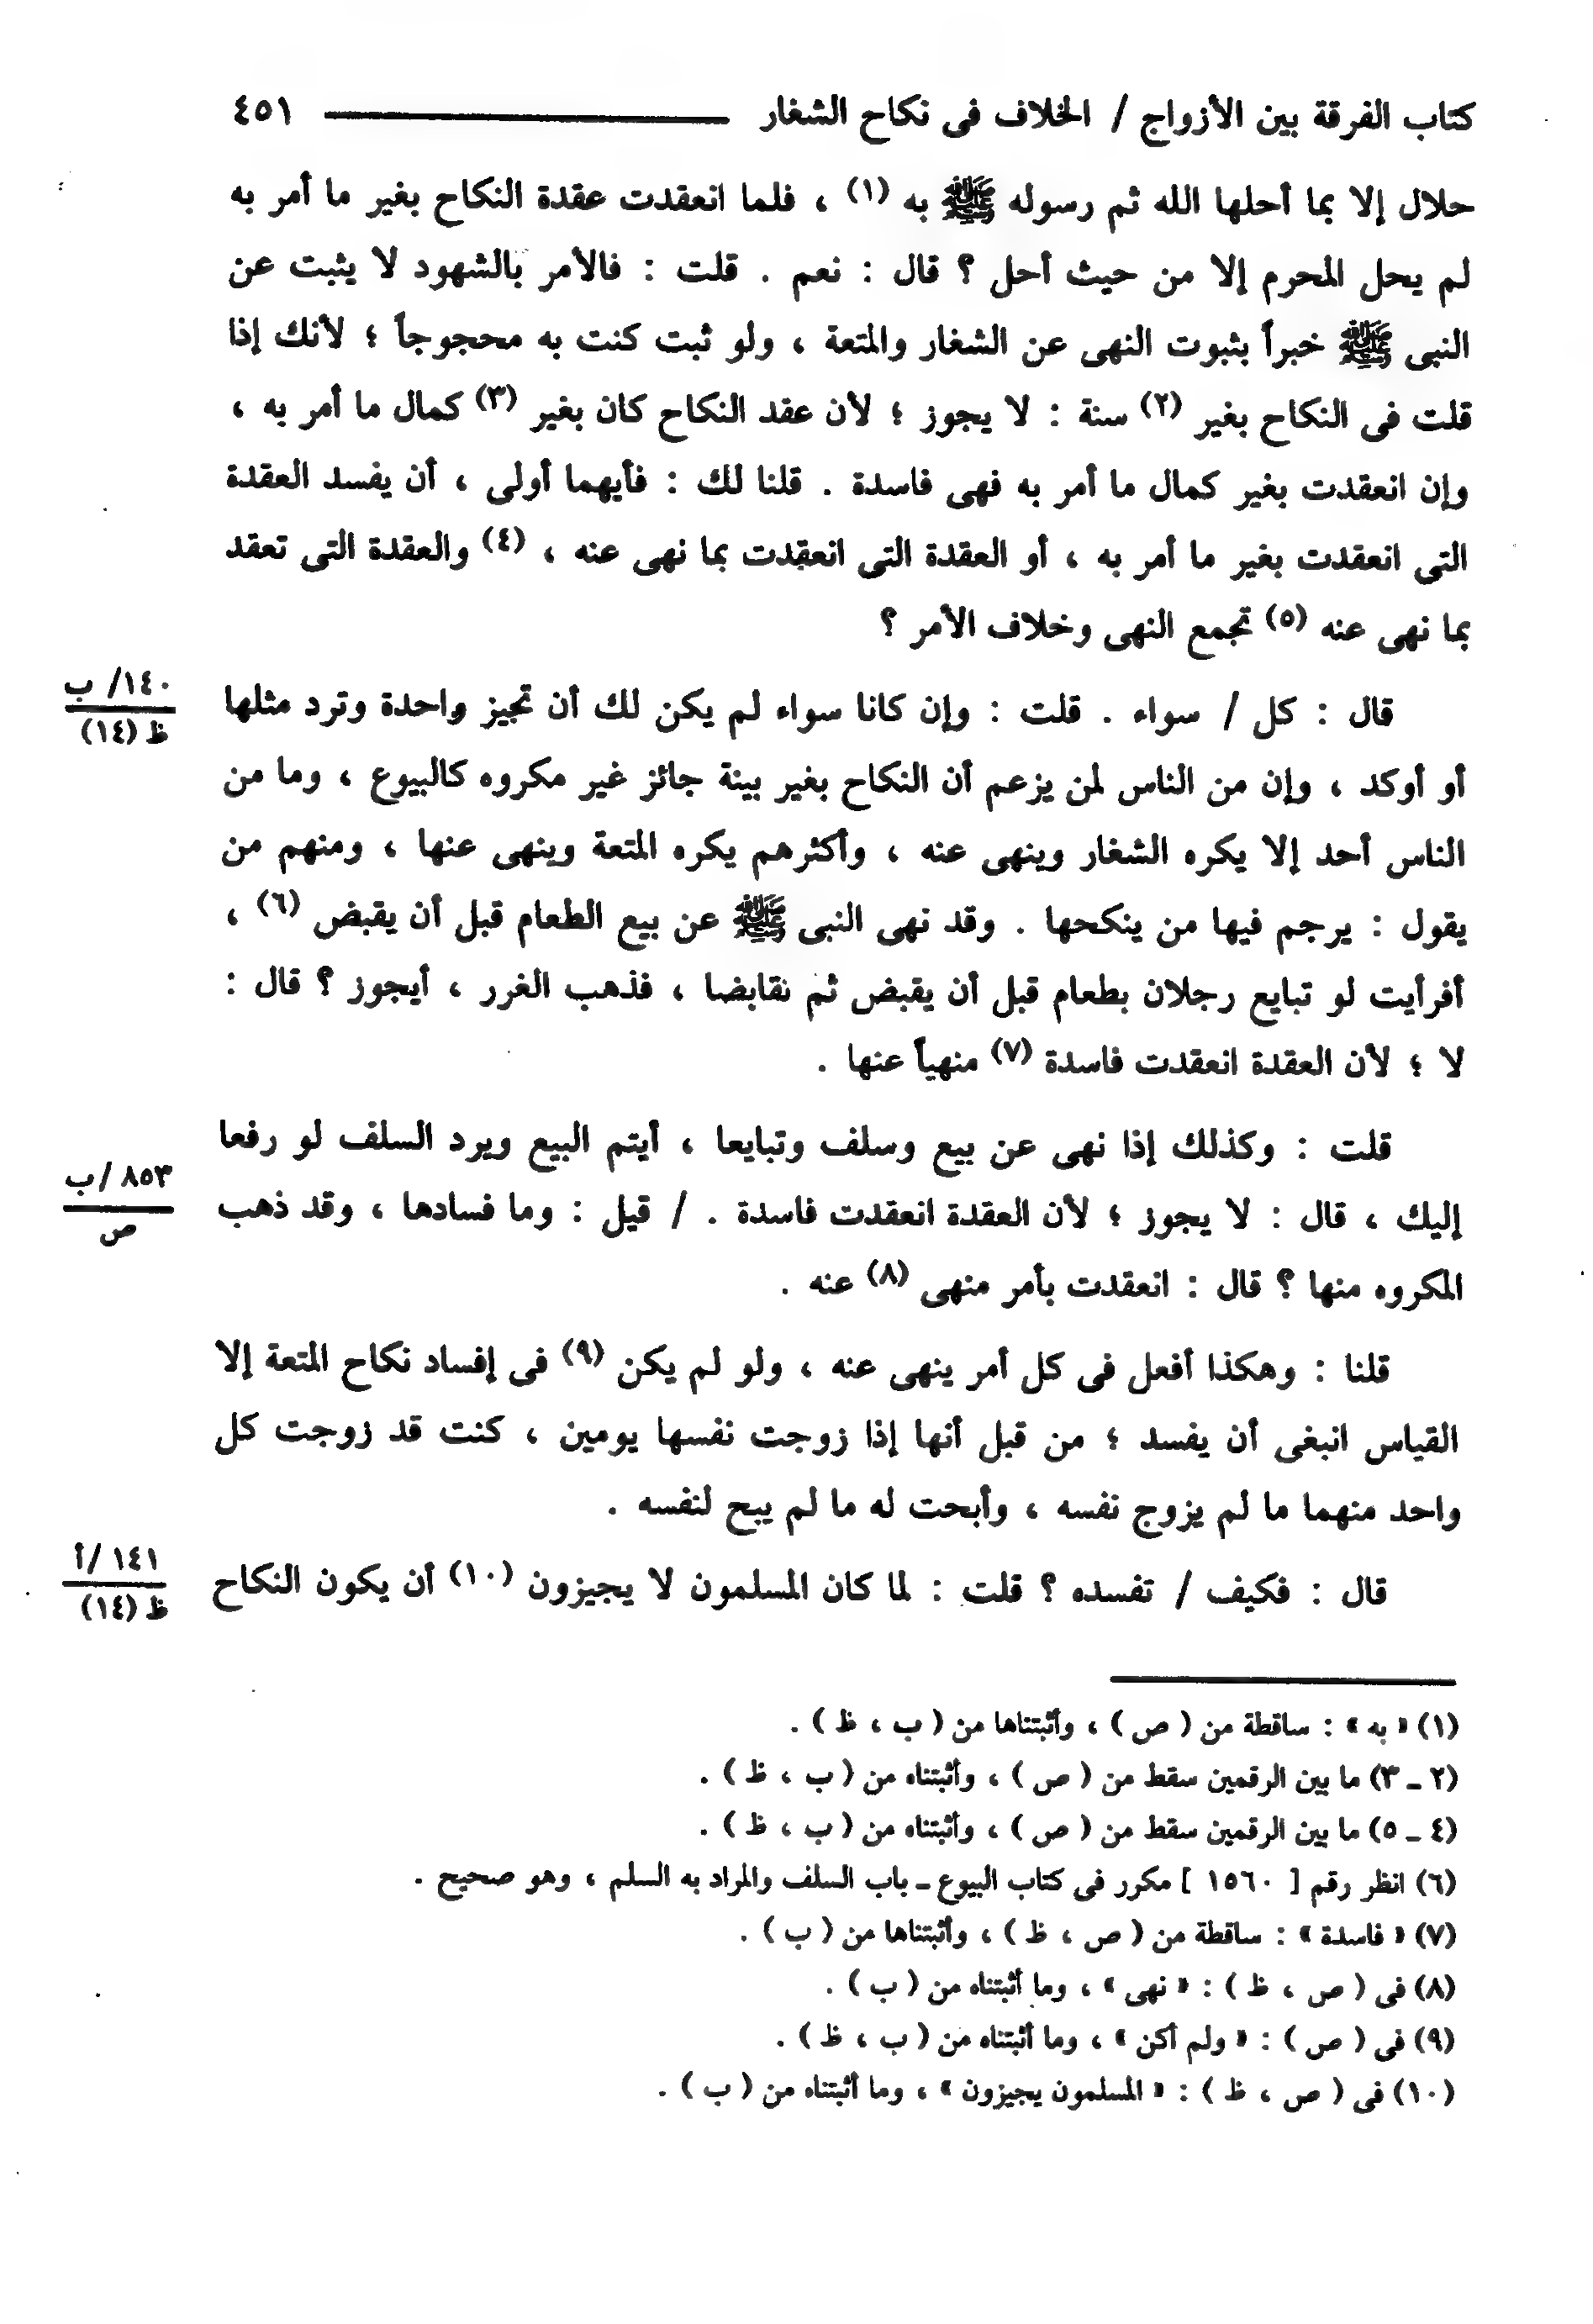 كتاب الفرقة بين الأزواج / الخلاف فى نكاح الشغار ٤٥١
حلال إلا بما أحلها الله ثم رسوله ﷺ به (١) ، فلما انعقدت عقدة النكاح بغير ما أمر به
لم يحل المحرم إلا من حيث أحل ؟ قال : نعم . قلت : فالأمر بالشهود لا يثبت عن
النبى ﷺ خبراً بثبوت النهى عن الشغار والمتعة ، ولو ثبت كنت به محجوجاً ؛ لأنك إذا
قلت فى النكاح بغير (٢) سنة : لا يجوز ؛ لأن عقد النكاح كان بغير (٣) كمال ما أمر به ،
وإن انعقدت بغير كمال ما أمر به فهى فاسدة . قلنا لك : فأيهما أولى ، أن يفسد العقدة
التى انعقدت بغير ما أمر به ، أو العقدة التى انعقدت بما نهى عنه ، (٤) والعقدة التى تعقد
بما نهى عنه (٥) تجمع النهى وخلاف الأمر ؟
قال : كل / سواء . قلت : وإن كانا سواء لم يكن لك أن تجيز واحدة وترد مثلها
١٤٠/ ب
ظ (١٤)
أو أوكد ، وإن من الناس لمن يزعم أن النكاح بغير بينة جائز غير مكروه كالبيوع ، وما من
الناس أحد إلا يكره الشغار وينهى عنه ، وأكثرهم يكره المتعة وينهى عنها ، ومنهم من
يقول : يرجم فيها من ينكحها . وقد نهى النبى ﷺ عن بيع الطعام قبل أن يقبض (٦) ،
أفرأيت لو تبايع رجلان بطعام قبل أن يقبض ثم نقابضا ، فذهب الغرر ، أيجوز ؟ قال :
لا ؛ لأن العقدة انعقدت فاسدة (٧) منهياً عنها .
قلت : وكذلك إذا نهى عن بيع وسلف وتبايعا ، أيتم البيع ويرد السلف لو رفعا
٨٥٣ /ب
ص
إليك ، قال : لا يجوز ؛ لأن العقدة انعقدت فاسدة . / قيل : وما فسادها ، وقد ذهب
المكروه منها ؟ قال : انعقدت بأمر منهى (٨) عنه .
قلنا : وهكذا أفعل فى كل أمر ينهى عنه ، ولو لم يكن (٩) فى إفساد نكاح المتعة إلا
القياس انبغى أن يفسد ؛ من قبل أنها إذا زوجت نفسها يومين ، كنت قد زوجت كل
واحد منهما ما لم يزوج نفسه ، وأبحت له ما لم يبح لنفسه .
قال : فكيف / تفسده ؟ قلت : لما كان المسلمون لا يجيزون (١٠) أن يكون النكاح
١٤١ /أ
ظ (١٤)
(١) « به » : ساقطة من ( ص ) ، وأثبتناها من ( ب ، ظ ) .
(٢ ـ ٣) ما بين الرقمين سقط من ( ص ) ، وأثبتناه من ( ب ، ظ ) .
(٤ ـ ٥) ما بين الرقمين سقط من ( ص ) ، وأثبتناه من ( ب ، ظ ) .
(٦) انظر رقم [ ١٥٦٠ ] مكرر فى كتاب البيوع ـ باب السلف والمراد به السلم ، وهو صحيح .
(٧) « فاسدة » : ساقطة من ( ص ، ظ ) ، وأثبتناها من ( ب ) .
(٨) فى ( ص ، ظ ) : « نهى » ، وما أثبتناه من ( ب ) .
(٩) فى ( ص ) : « ولم أكن » ، وما أثبتناه من ( ب ، ظ ) .
(١٠) فى ( ص ، ظ ) : « المسلمون يجيزون » ، وما أثبتناه من ( ب ) .